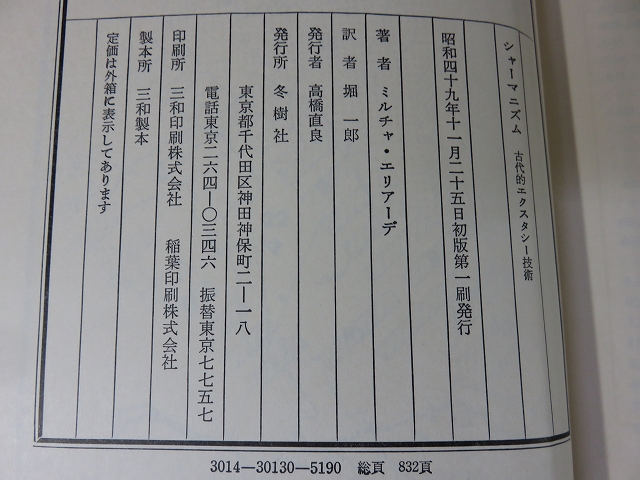 シャーマニズム 古代的エクスタシー技術
昭和四十九年十一月二十五日初版第一刷発行
著者 ミルチャ・エリアーデ
訳者 堀一郎
発行者 高橋直良
発行所 冬樹社
東京都千代田区神田神保町二―一八
電話東京二六四―〇三四六 振替東京七七五七
印刷所 三和印刷株式会社 稲葉印刷株式会社
製本所 三和製本
定価は外箱に表示してあります
3014―30130―5190 総頁 832頁